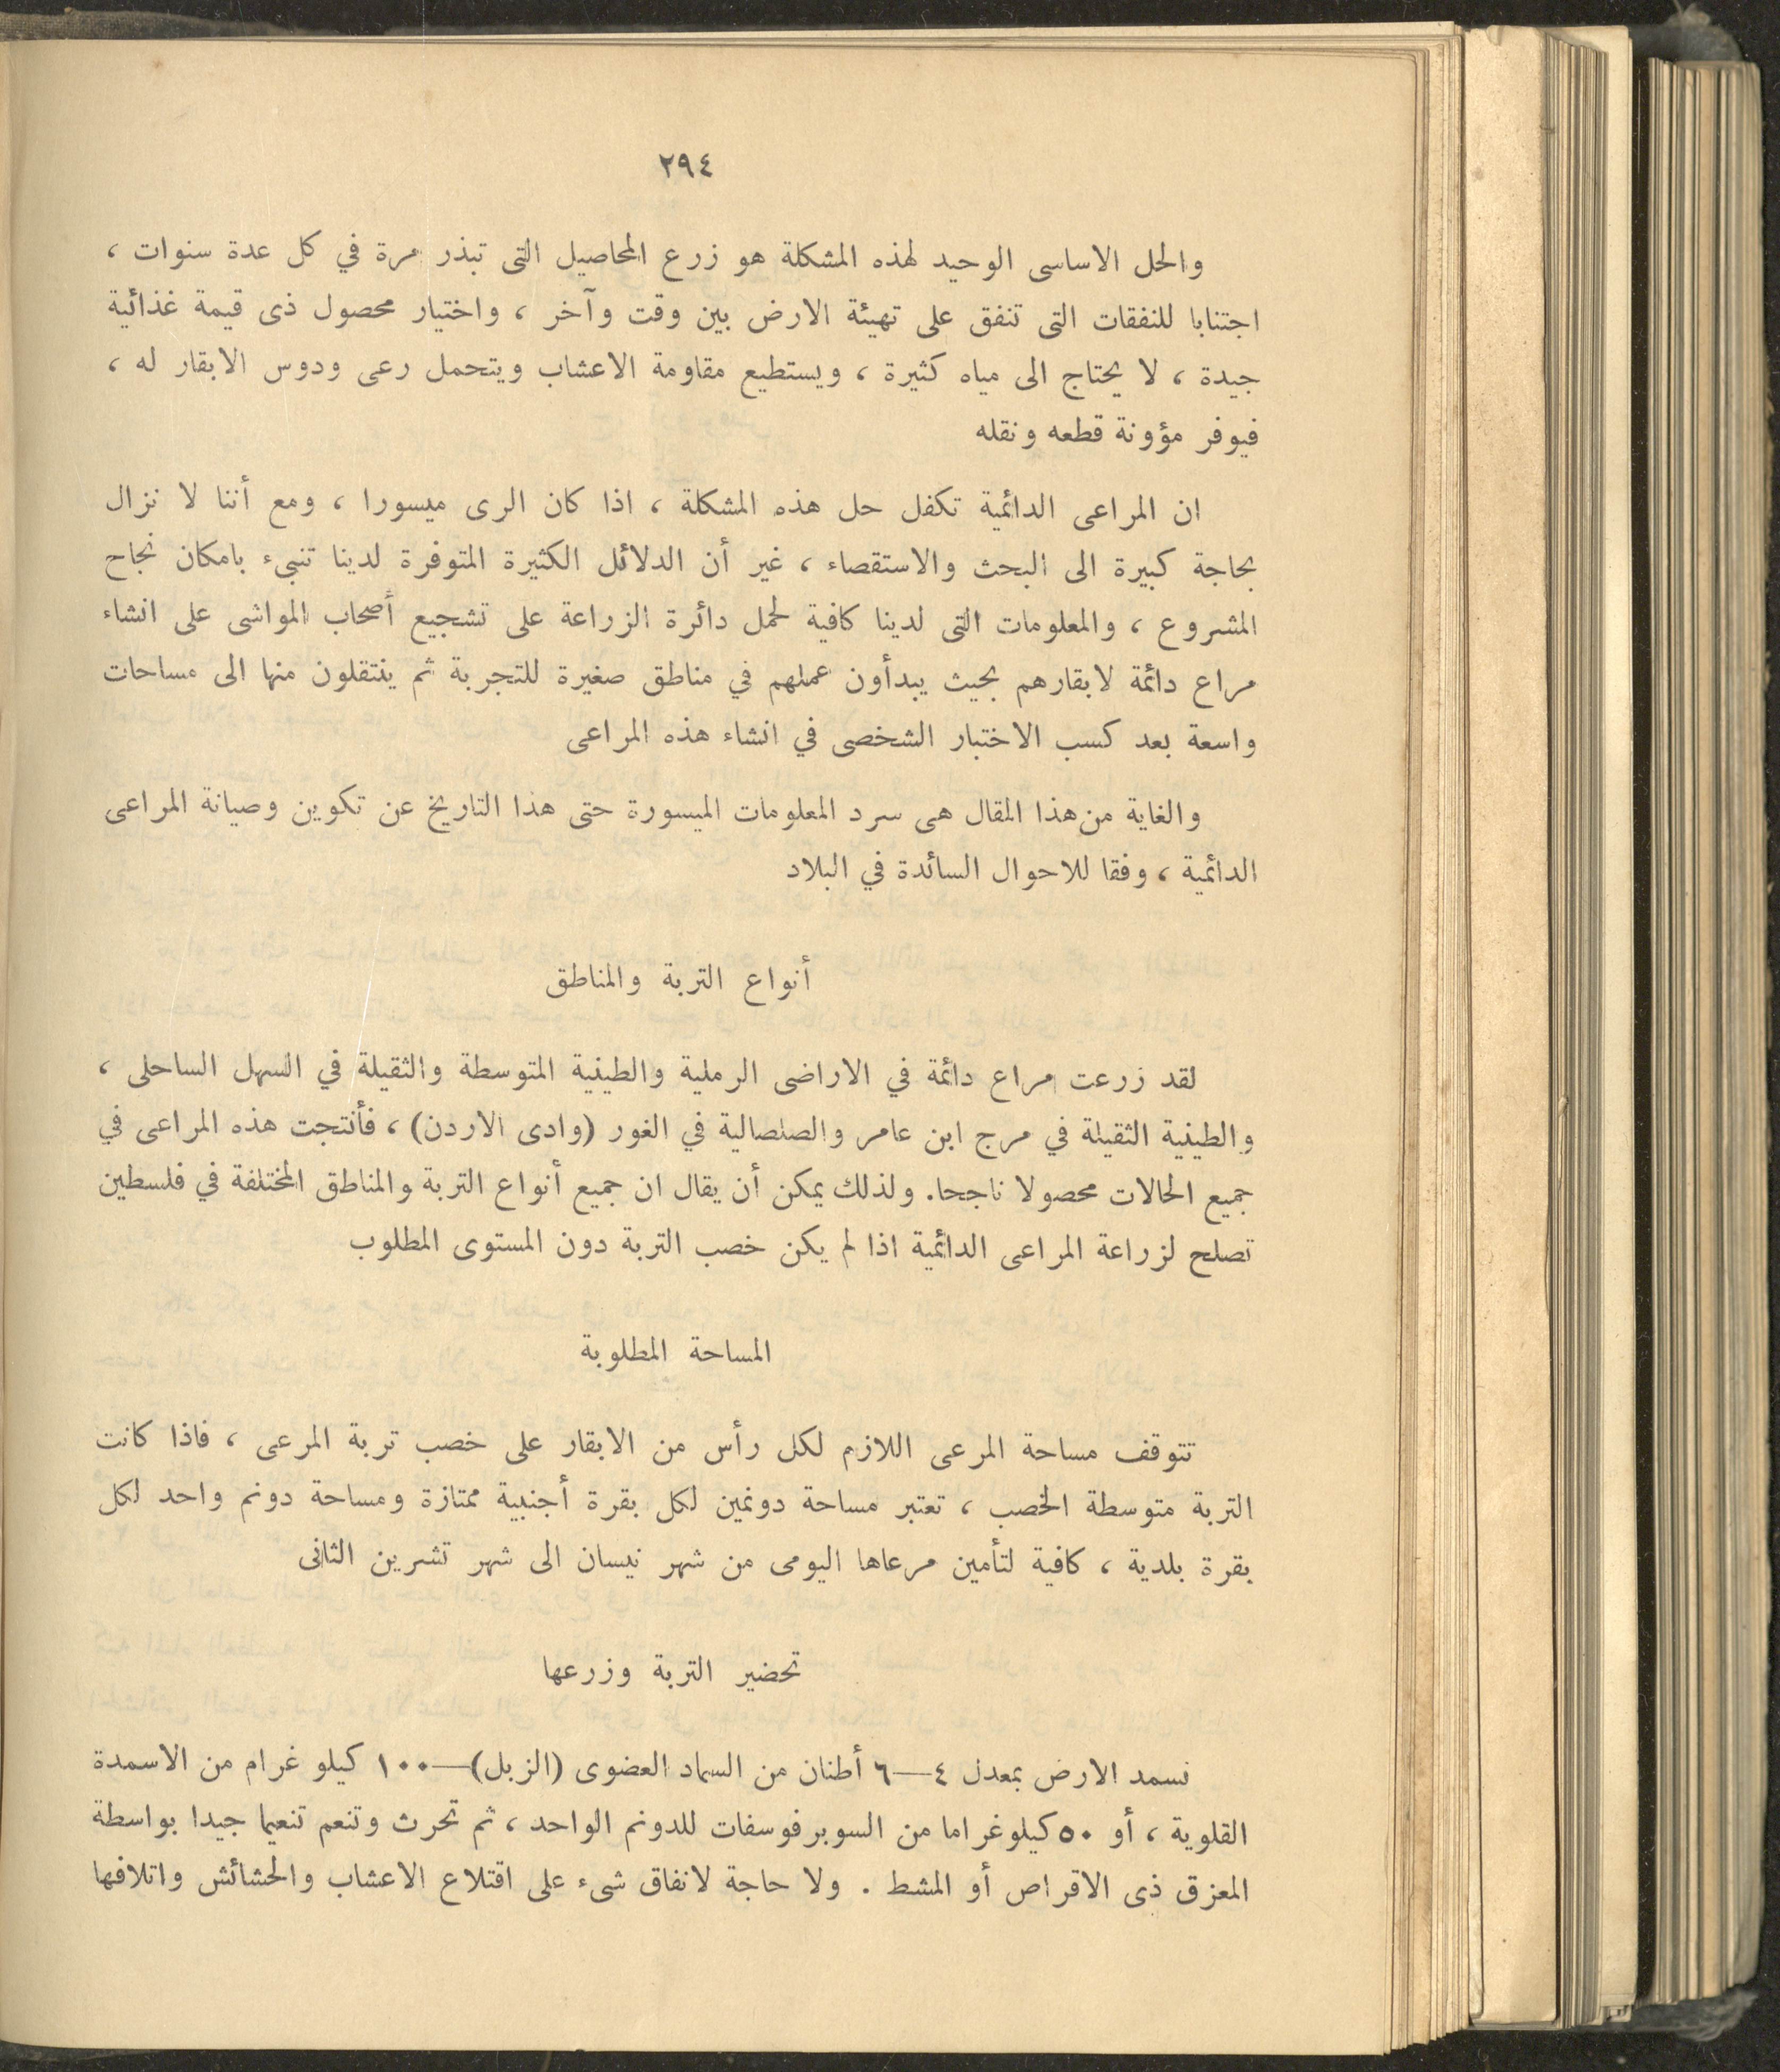 ٢٩٤
والحل الاساسى الوحيد لهذه المشكلة هو زرع المحاصيل التى تبذر مرة في كل عدة سنوات ،
اجتنابا للنفقات التى تنفق على تهيئة الارض بين وقت وآخر ، واختيار محصول ذى قيمة غذائية
جيدة ، لا يحتاج الى مياه كثيرة ، ويستطيع مقاومة الاعشاب ويتحمل رعى ودوس الابقار له ،
فيوفر مؤونة قطعه ونقله
ان المراعى الدائمية تكفل حل هذه المشكلة ، اذا كان الرى ميسورا ، ومع أننا لا نزال
بحاجة كبيرة الى البحث والاستقصاء ، غير أن الدلائل الكثيرة المتوفرة لدينا تنبىء بامكان نجاح
المشروع ، والمعلومات التى لدينا كافية لحمل دائرة الزراعة على تشجيع أصحاب المواشى على انشاء
مراع دائمة لابقارهم بحيث يبدأون عملهم في مناطق صغيرة للتجربة ثم ينتقلون منها الى مساحات
واسعة بعد كسب الاختبار الشخصى في انشاء هذه المراعى
والغاية من هذا المقال هى سرد المعلومات الميسورة حتى هذا التاريخ عن تكوين وصيانة المراعى
الدائمية ، وفقا للاحوال السائدة في البلاد
أنواع التربة والمناطق
لقد زرعت مراع دائمة في الاراضى الرملية والطينية المتوسطة والثقيلة في السهل الساحلى ،
والطينية الثقيلة في مرج ابن عامر والصلصالية في الغور (وادى الاردن) ، فأنتجت هذه المراعى في
جميع الحالات محصولا ناجحا. ولذلك يمكن أن يقال ان جميع أنواع التربة والمناطق المختلفة في فلسطين
تصلح لزراعة المراعى الدائمية اذا لم يكن خصب التربة دون المستوى المطلوب
المساحة المطلوبة
تتوقف مساحة المرعى اللازم لكل رأس من الابقار على خصب تربة المرعى ، فاذا كانت
التربة متوسطة الخصب ، تعتبر مساحة دونمين لكل بقرة أجنبية ممتازة ومساحة دونم واحد لكل
بقرة بلدية ، كافية لتأمين مرعاها اليومى من شهر نيسان الى شهر تشرين الثانى
تحضير التربة وزرعها
نسمد الارض بمعدل ٤—٦ أطنان من السماد العضوى (الزبل)—١٠٠ كيلو غرام من الاسمدة
القلوية ، أو ٥٠ كيلوغراما من السوبرفوسفات للدونم الواحد ، ثم تحرث وتنعم تنعيما جيدا بواسطة
المعزق ذى الاقراص أو المشط . ولا حاجة لانفاق شىء على اقتلاع الاعشاب والحشائش واتلافها